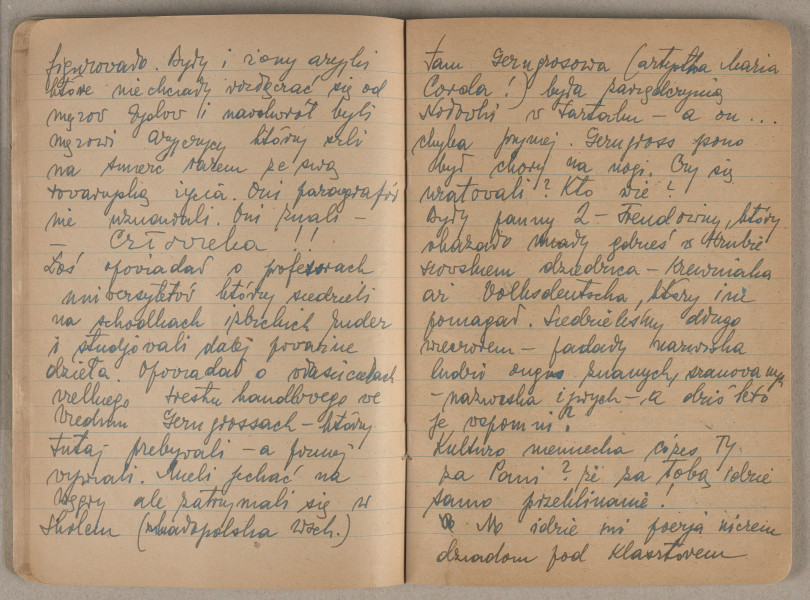 figurovado. Bydy i żony aryjki
które nie chciady rozdęczać się od
mężov żydov i naodwrót byli
mężowi Aryjczycy którzy szli
na śmierć razem ze swą
tovarzyszką życia. Oni paragrafów
nie uznawali. Oni znali –
– Człovieka !!
Łoś opoviadad o profesorach
universytetóv którzy siedzieli
na schodkach izbickich ruder
i studjóvali dalej poważne
dzieła. Opoviadad o właścicielach
vielkiego trestu handlovego ve
Viedniu Gerngrossach – którzy
tutaj przebyvali – a później
vyjechali. Mieli jechać na
Węgry ale zatrzymali się w
Skolem (małopolska Wsch.)
tam Gerngrosowa (artystka Maria
Corda!) była
w Tartaku – a on ...
chyba później. Gerngross pono
był chory na nogi. Czy się
uratovali? Kto wie?
Bydy panny 2 – Frendoviny, który
okazado miady gdzieś w Hrubie
szovskiem dziedzica – Krevniaka
aż Volksdeutscha, który im
pomagad. Siedzieliśmy długo
wieczorem – padady nazwiska
ludzi ongiś znanych, szanovanych
– nazwiska żyvych –, a dziś któż
je vspomni?
Kulturo niemiecka cóżeś Ty
za Pani? że za tobą idzie
samo przeklinanie!
No idzie mi poezja niczem
dziadom pod klasztorem